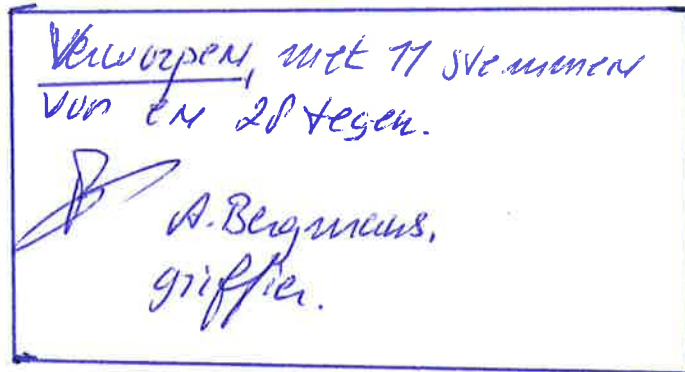 Verworpen, met 11 stemmen
voor en 28 tegen.
A. Bergmans,
griffier.